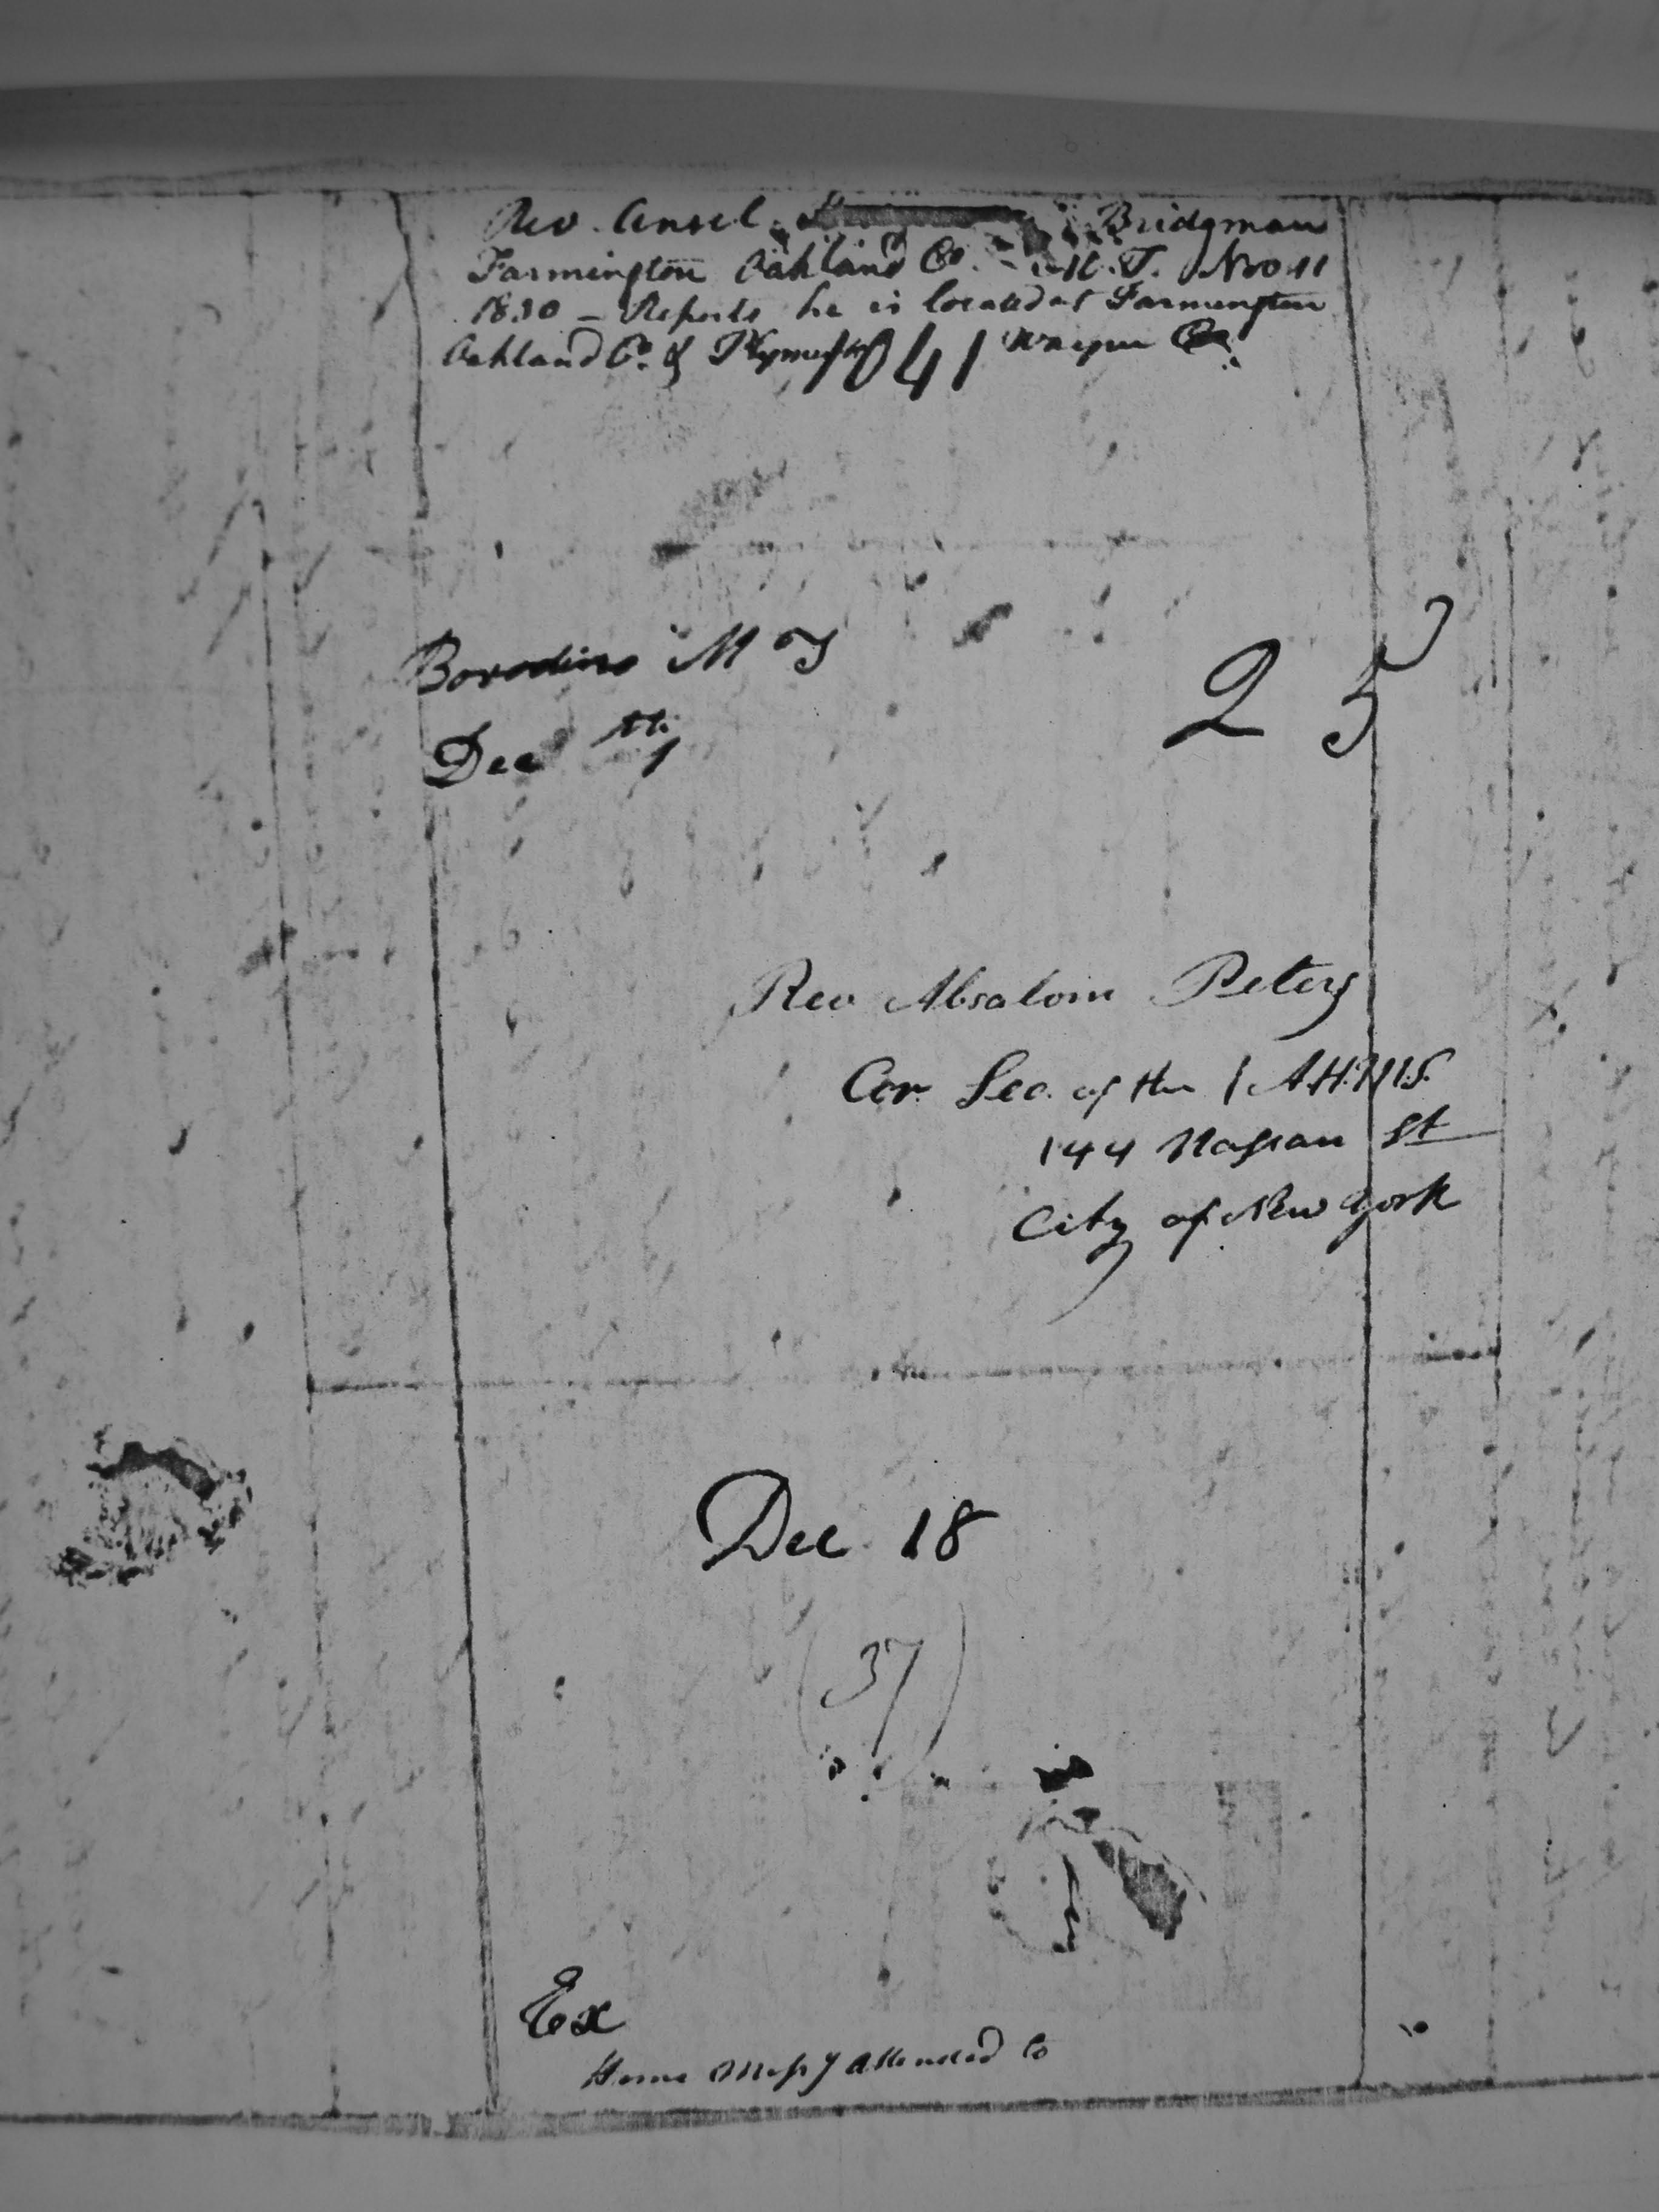 Rev. Ansel Bridgman
Farmington Oakland Co. M.T. Nov 11
1830 – Reports he is located at Farmington
Oakland Co. & Plymouth Wayne Co.
1041
Borodino M T
Dec 7th
25
Rev Absalom Peters
Cor. Sec. of the A.H.M.S.
144 Nassau St
City of New York
Dec 18
(37)
Ex
Home Missy attended to